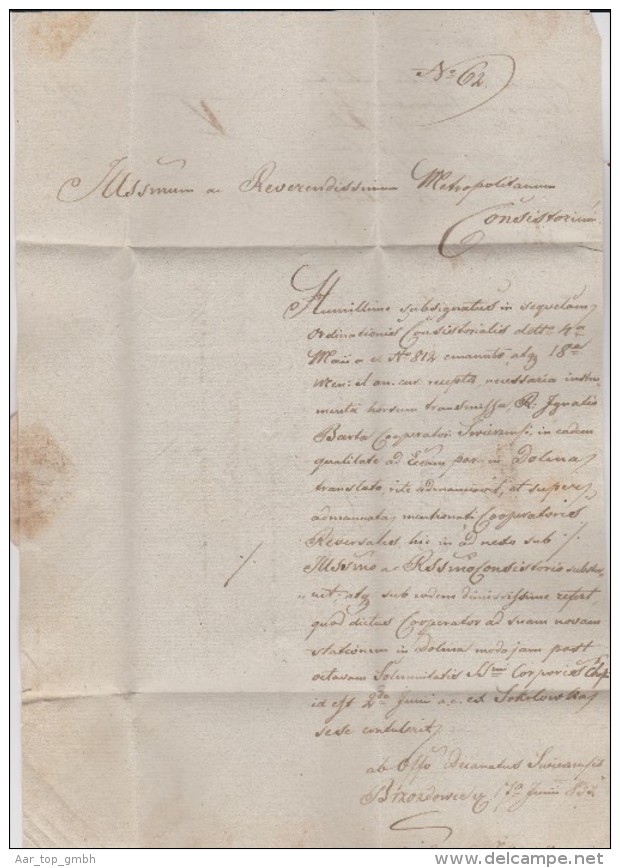 No 62
Illssmum ac Reverendissimum Metropolitanum
Consistorium
Humillime subsignatus in sequelam
Ordinationis Consistorialis ddtto 4ta
Maii a c No 812 emanatæ, atq 18va
Men: et an: cur: receptæ, necessaria instru
menta horsum transmissa, R. Ignatio
Barta Cooperatori Swierzensi, in eadem
qualitate ad Ecclam par. in Dolina
translato rite admanuavit, et super
admanuata, mentionati Cooperatoris
Reversales, hic in adnexo sub ./.
./.
Illssmo ac Rssmo Consistorio subster
nit, atq sub eodem dimississime refert,
quod dictus Cooperator ad suam novam
stationem in Dolina modo jam post
octavam Solennitatis Ssmi Corporis Chri
id est 2da Junii a. c. ex Sokolowka
sese contulerit.
ab Offo Decanatus Swierzensis
7a Junii 832
Aar_top_gmbh
www.delcampe.net